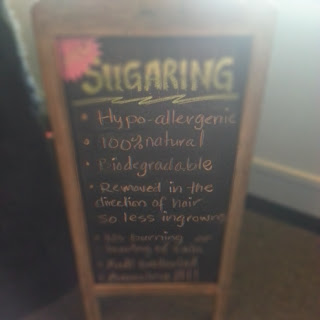 SUGARING
• Hypo-allergenic
• 100% natural
• Biodegradable
• Removed in the
direction of hair
so less ingrowns
• No burning or
tearing of skin